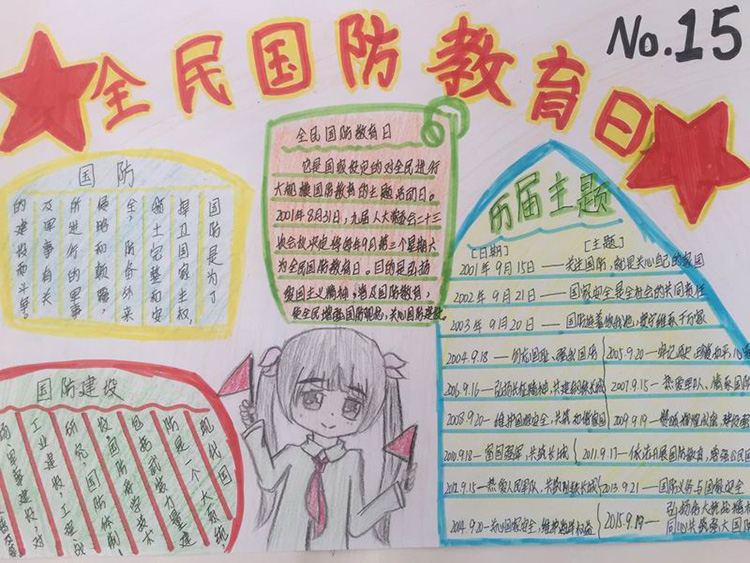 No.15
全民国防教育日
国防
国防是为了
捍卫国家主权,
领土完整和安
全,防备外来
侵略和颠覆,
所进行的军事
及军事有关
的建设和斗争
全民国防教育日
它是国家设定的对全民进行
大规模国防教育的主题活动日。
2001年8月31日,九届人大常委会二十三
次会议决定将每年9月第三个星期六
为全民国防教育日,目的是弘扬
爱国主义精神,普及国防教育,
使全民增强国防观念,关心国防建设。
历届主题
[日期] [主题]
2001年9月15日——关注国防,就是关心自己的家园
2002年9月21日——国家安全是全社会的共同责任
2003年9月20日——国防连着你我他
2004.9.18—勿忘国耻,强我国防
2005.9.20—牢记历史
2006.9.16—弘扬长征精神,共建钢铁长城
2007.9.15—热爱军队
2008.9.20—维护国家安全,共筑和谐家园
2009.9.19—赞颂辉煌成就
2010.9.18—富国强军,共筑长城
2011.9.17—依法开展国防教育,增强公民国
2012.9.15—热爱人民军队,共筑钢铁长城
2013.9.21—国防义务与国家安全
2014.9.20—关心国家安全,维护海洋权益
2015.9.19—弘扬伟大抗战精神
同心共筑强大国防
国防建设
现代国
防是一个大系统,
包括武装力量建
设,国防科学技术
研究,国防体制,
工业建设,工程
的军事建设,对